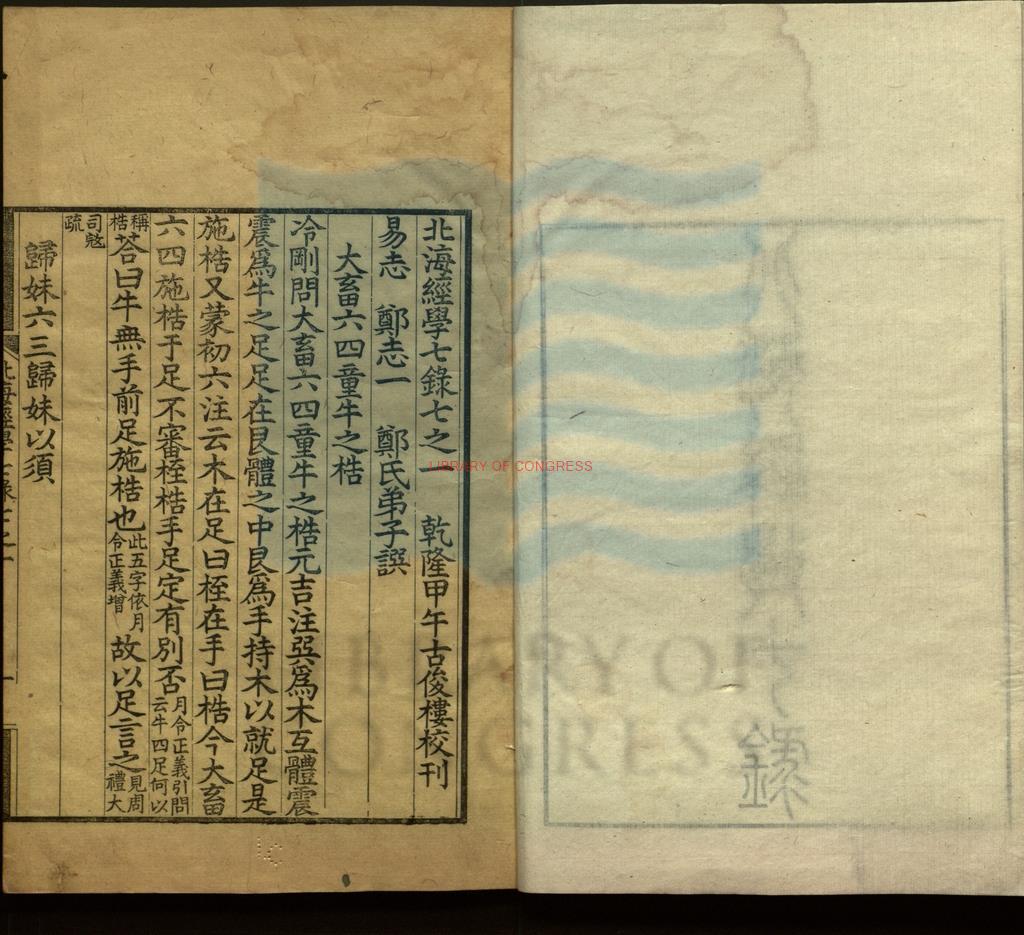 北海經學七錄七之一　乾隆甲午古俊樓校刊
易志　鄭志一　鄭氏弟子譔
大畜六四童牛之梏
冷剛問大畜六四童牛之梏元吉注巽爲木互體震
震爲牛之足足在艮體之中艮爲手持木以就足是
施梏又蒙初六注云木在足曰桎在手曰梏今大畜
六四施梏于足不審桎梏手足定有別否月令正義引問
云牛四足何以
稱
梏荅曰牛無手前足施梏也此五字依月
令正義增故以足言之見周
禮大
司𡨥
疏
歸妹六三歸妹以須
北海經學七錄七之一
一
錄
LIBRARY OF CONGRESS
LIBRARY OF
CONGRESS